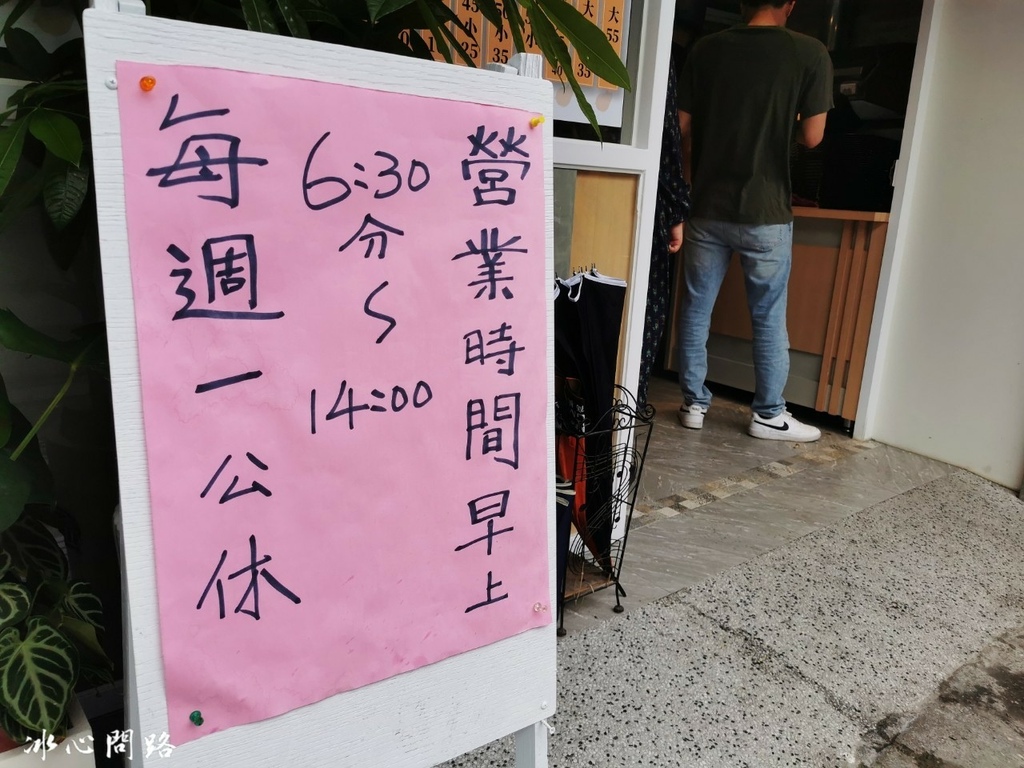 營業時間早上
6:30分~14:00
每週一公休
大 55
小 35
小 35
冰心問路